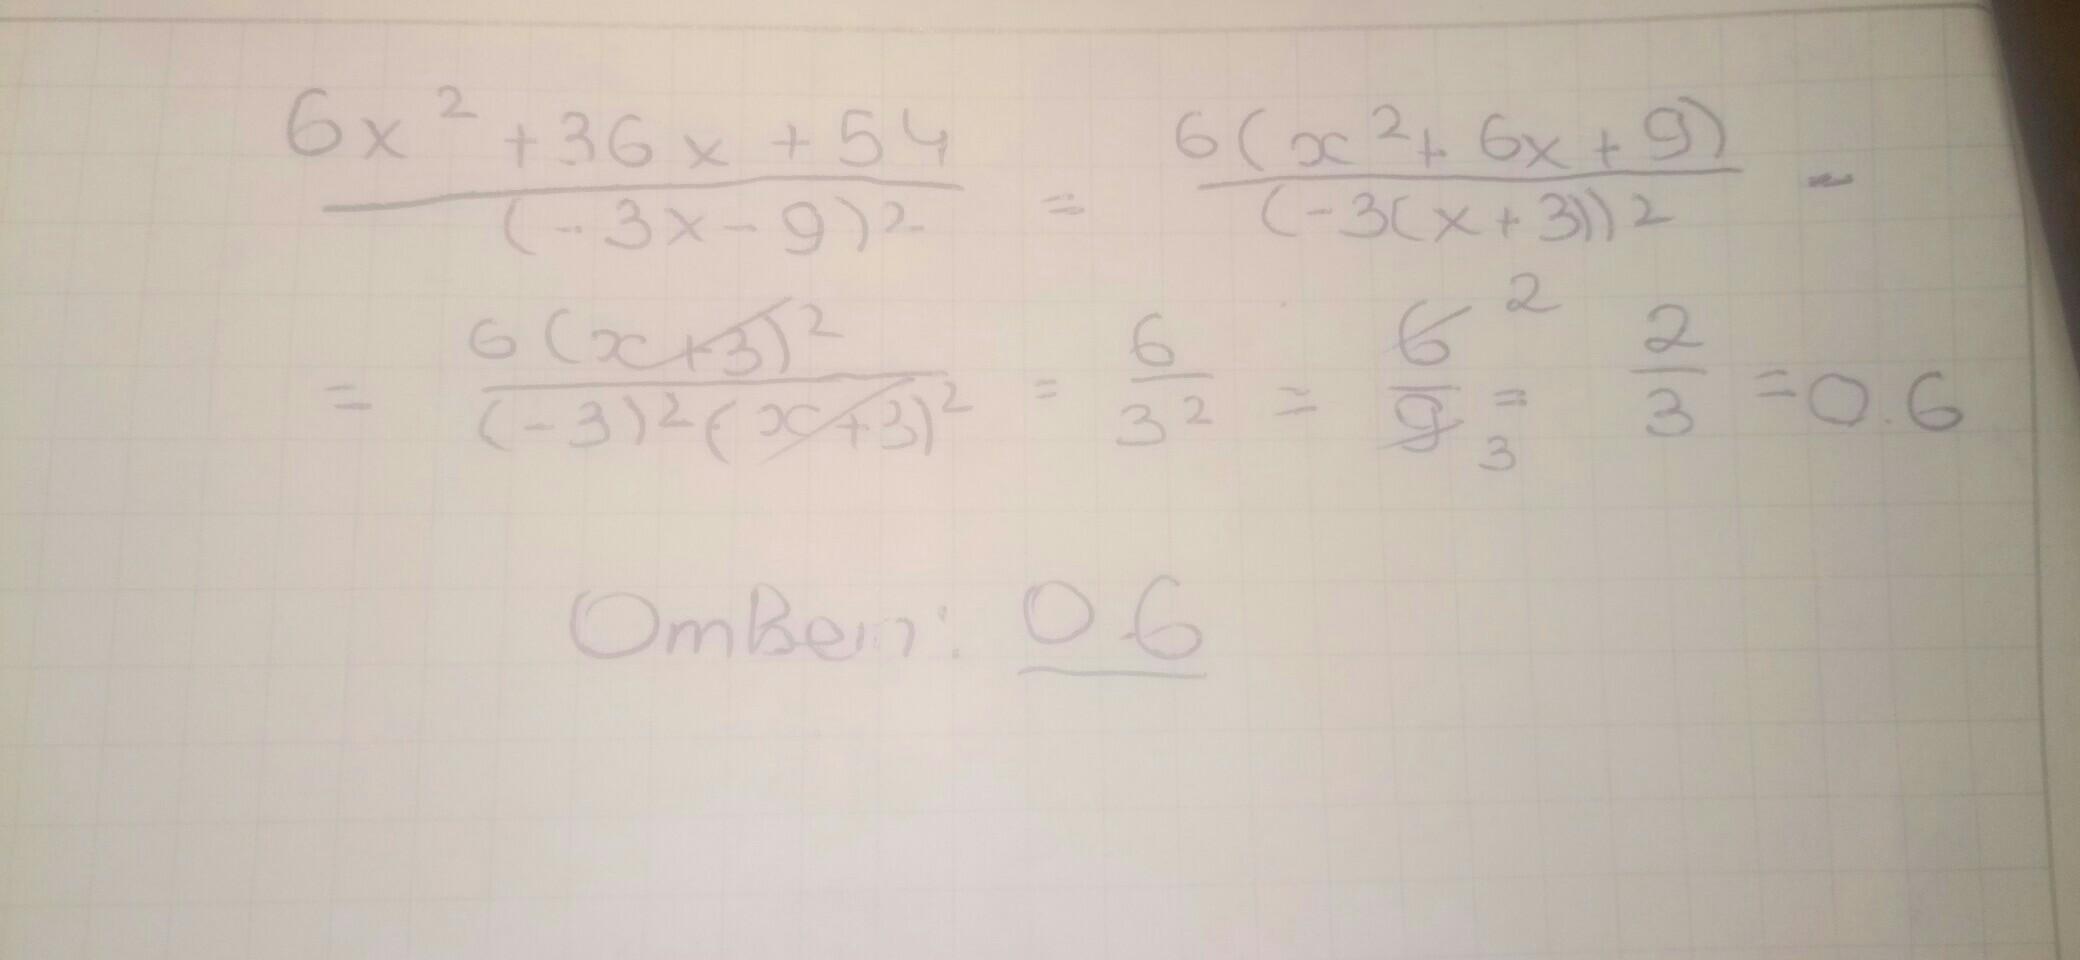 6x² + 36x + 54 / (-3x - 9)² = 6(x² + 6x + 9) / (-3(x + 3))² -
= 6(x+3)² / (-3)²(x+3)² = 6 / 3² = 6 2 / 9 3 = 2 / 3 = 0.6
Ответ: 0.6